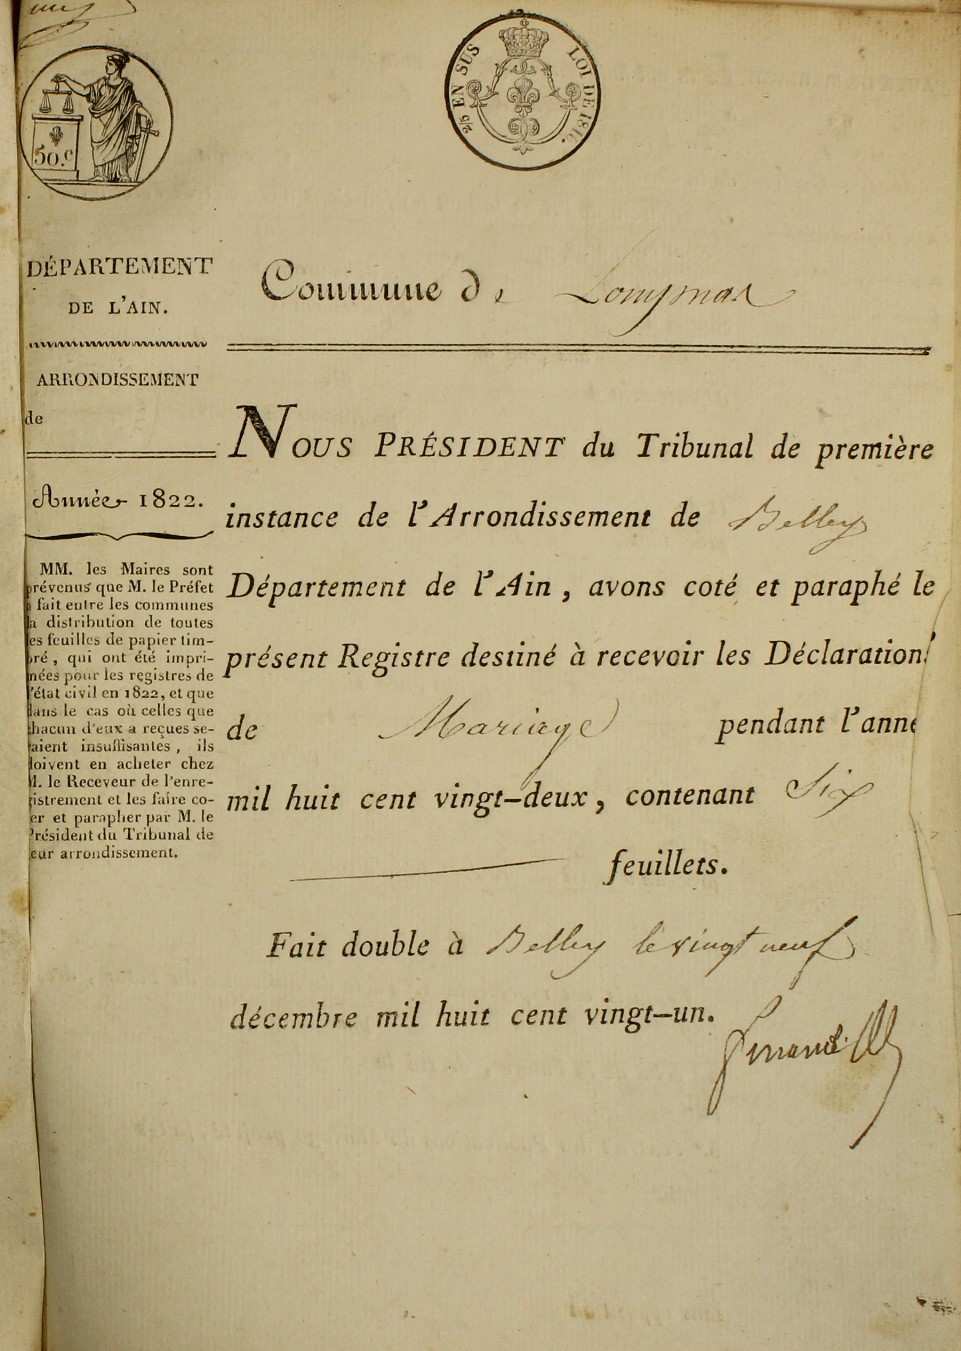 50.c
2/5 EN SUS LOI DE 1816.
DÉPARTEMENT
DE L'AIN.
ARRONDISSEMENT
de
Année 1822.
MM. les Maires sont
prévenus que M. le Préfet
a fait entre les communes
la distribution de toutes
les feuilles de papier tim-
bré, qui ont été impri-
mées pour les registres de
l'état civil en 1822, et que
dans le cas où celles que
chacun d'eux a reçues se-
raient insuffisantes, ils
doivent en acheter chez
M. le Receveur de l'enre-
gistrement et les faire co-
ter et parapher par M. le
Président du Tribunal de
leur arrondissement.
Commune de Lompnas
NOUS PRÉSIDENT du Tribunal de première
instance de l'Arrondissement de Belley
Département de l'Ain, avons coté et paraphé le
présent Registre destiné à recevoir les Déclarations
de Mariage pendant l'anné
mil huit cent vingt-deux, contenant Six
feuillets.
Fait double à Belley le vingt neuf
décembre mil huit cent vingt-un.